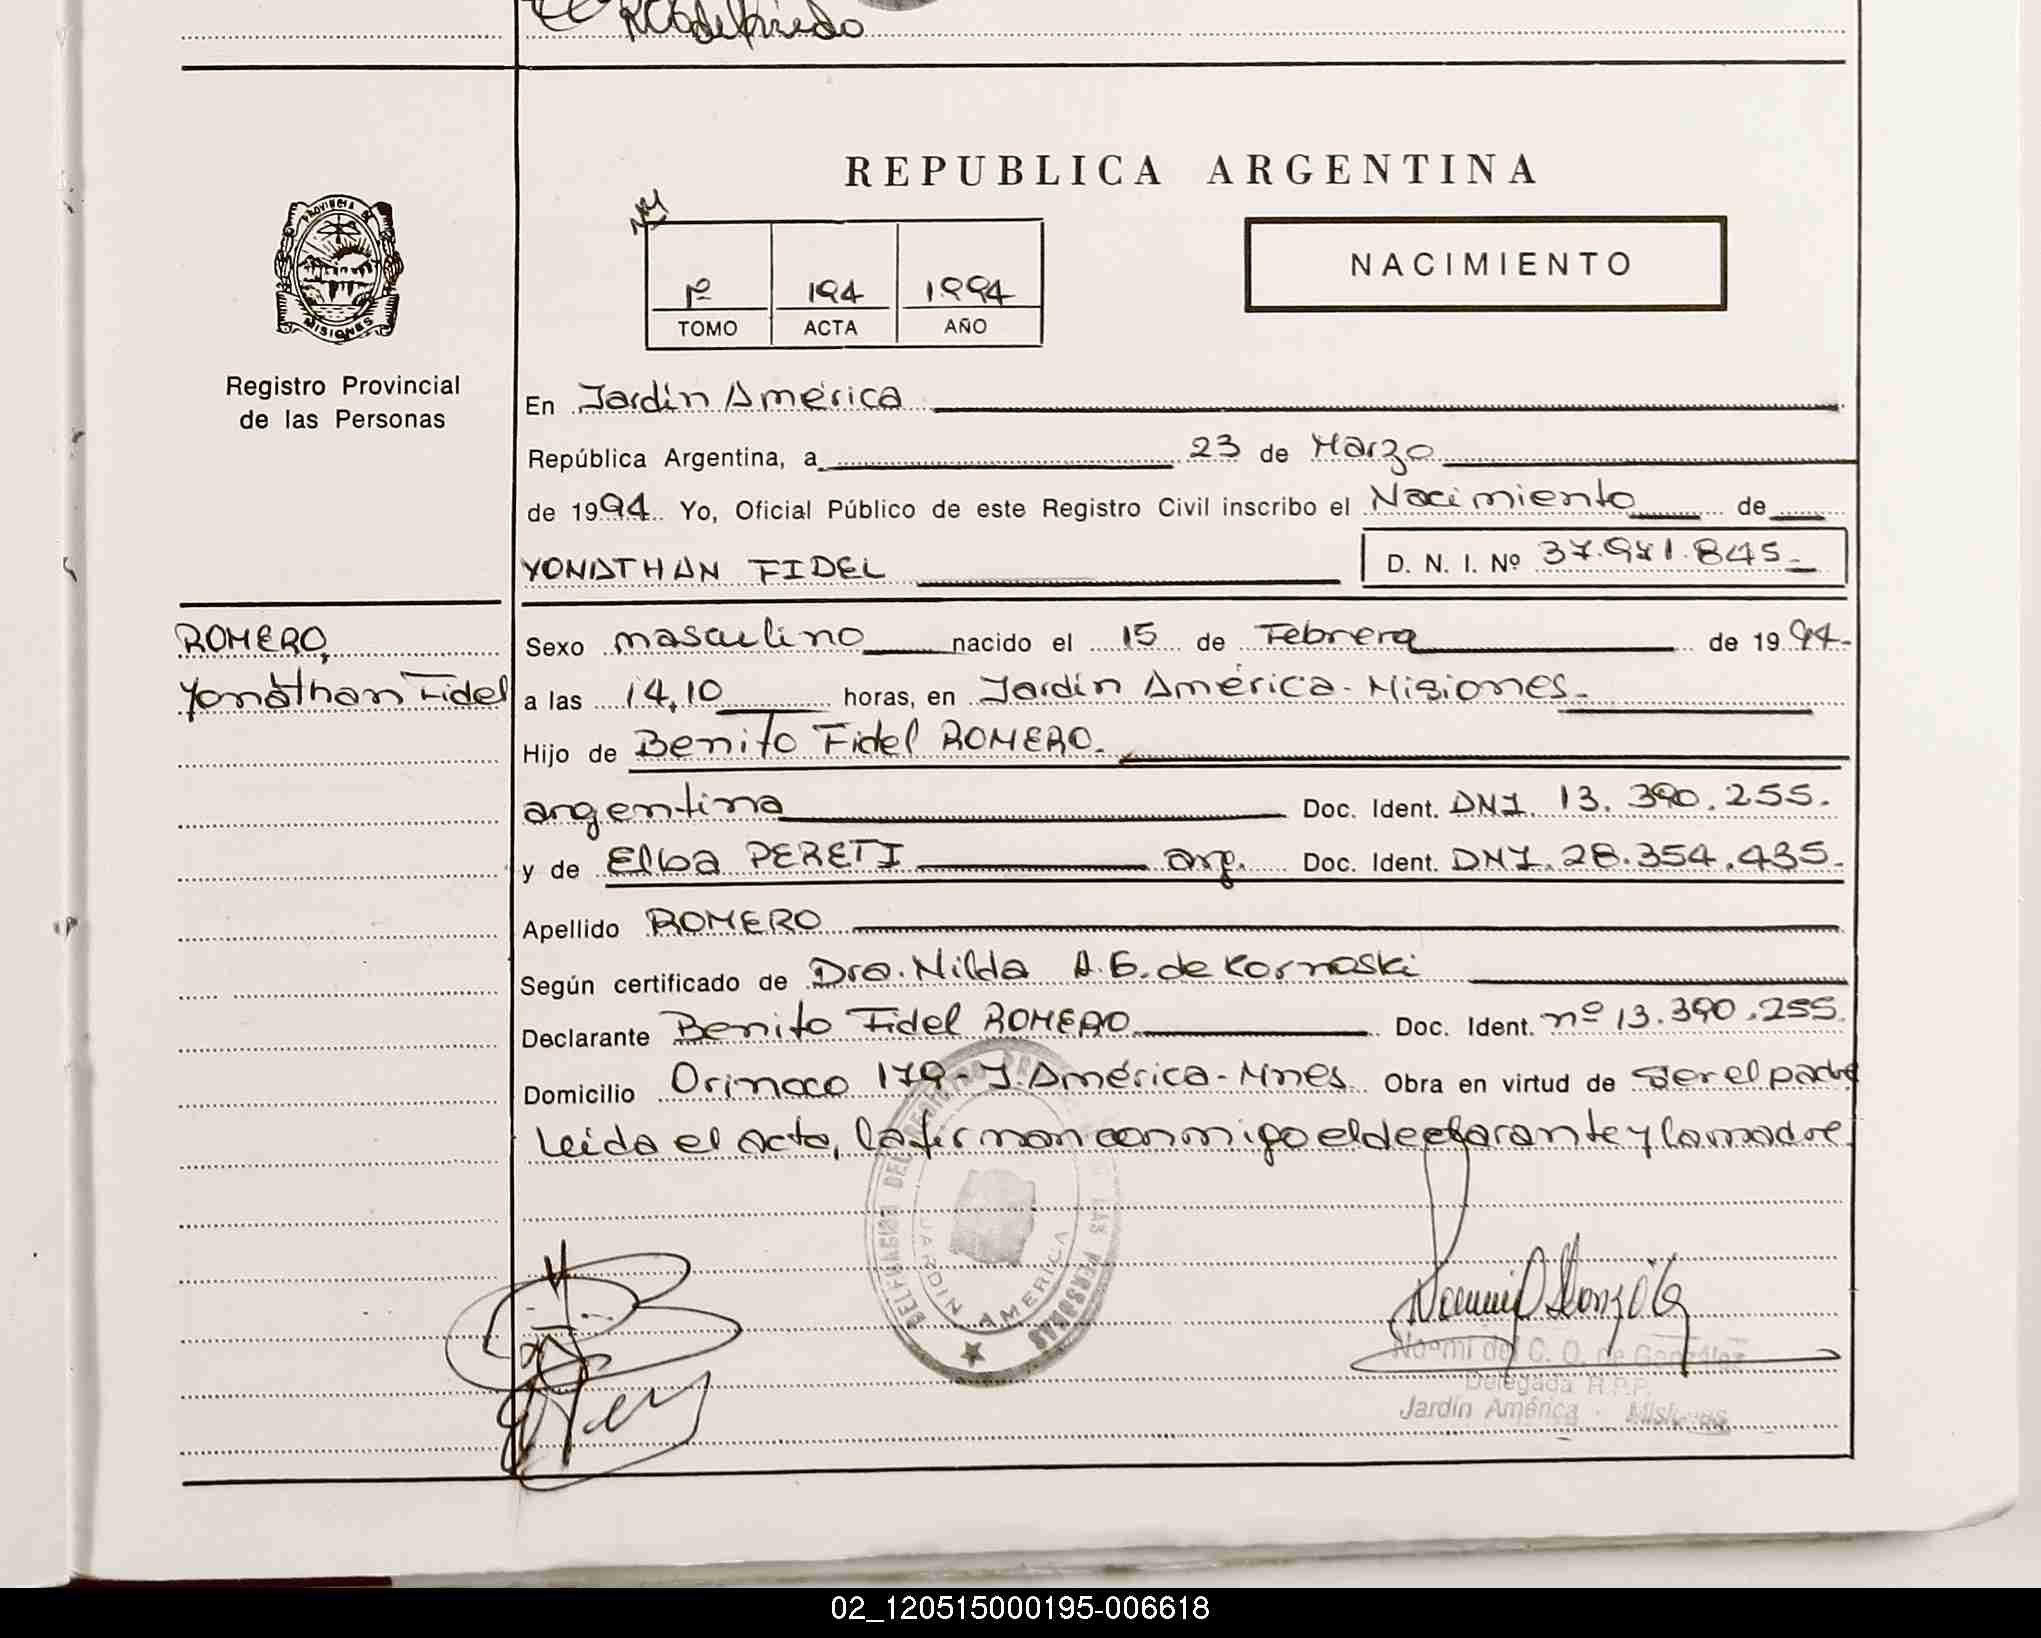 REPUBLICA ARGENTINA
1º 194 1994
TOMO ACTA AÑO
NACIMIENTO
PROVINCIA DE
MISIONES
Registro Provincial
de las Personas
En Jardín América
República Argentina, a 23 de Marzo
de 1994. Yo, Oficial Público de este Registro Civil inscribo el Nacimiento de
YONATHAN FIDEL D. N. I. Nº 37.971.845
ROMERO,
Yonathan Fidel
Sexo masculino nacido el 15 de Febrero de 1994.
a las 14,10 horas, en Jardín América - Misiones.
Hijo de Benito Fidel ROMERO.
argentina Doc. Ident. DNI. 13.390.255.
y de Elba PERETI arg. Doc. Ident. DNI. 28.354.435.
Apellido ROMERO
Según certificado de Dra. Nilda A. G. de Kornaski
Declarante Benito Fidel ROMERO Doc. Ident. nº 13.390.255.
Domicilio Orinoco 179 - J. América - Mnes. Obra en virtud de ser el padre
Leida el acta, la firman conmigo el declarante y la madre.
JARDIN AMERICA
Noemi del C. O. de González
Delegada R.P.P.
Jardín América - Misiones
02_120515000195-006618